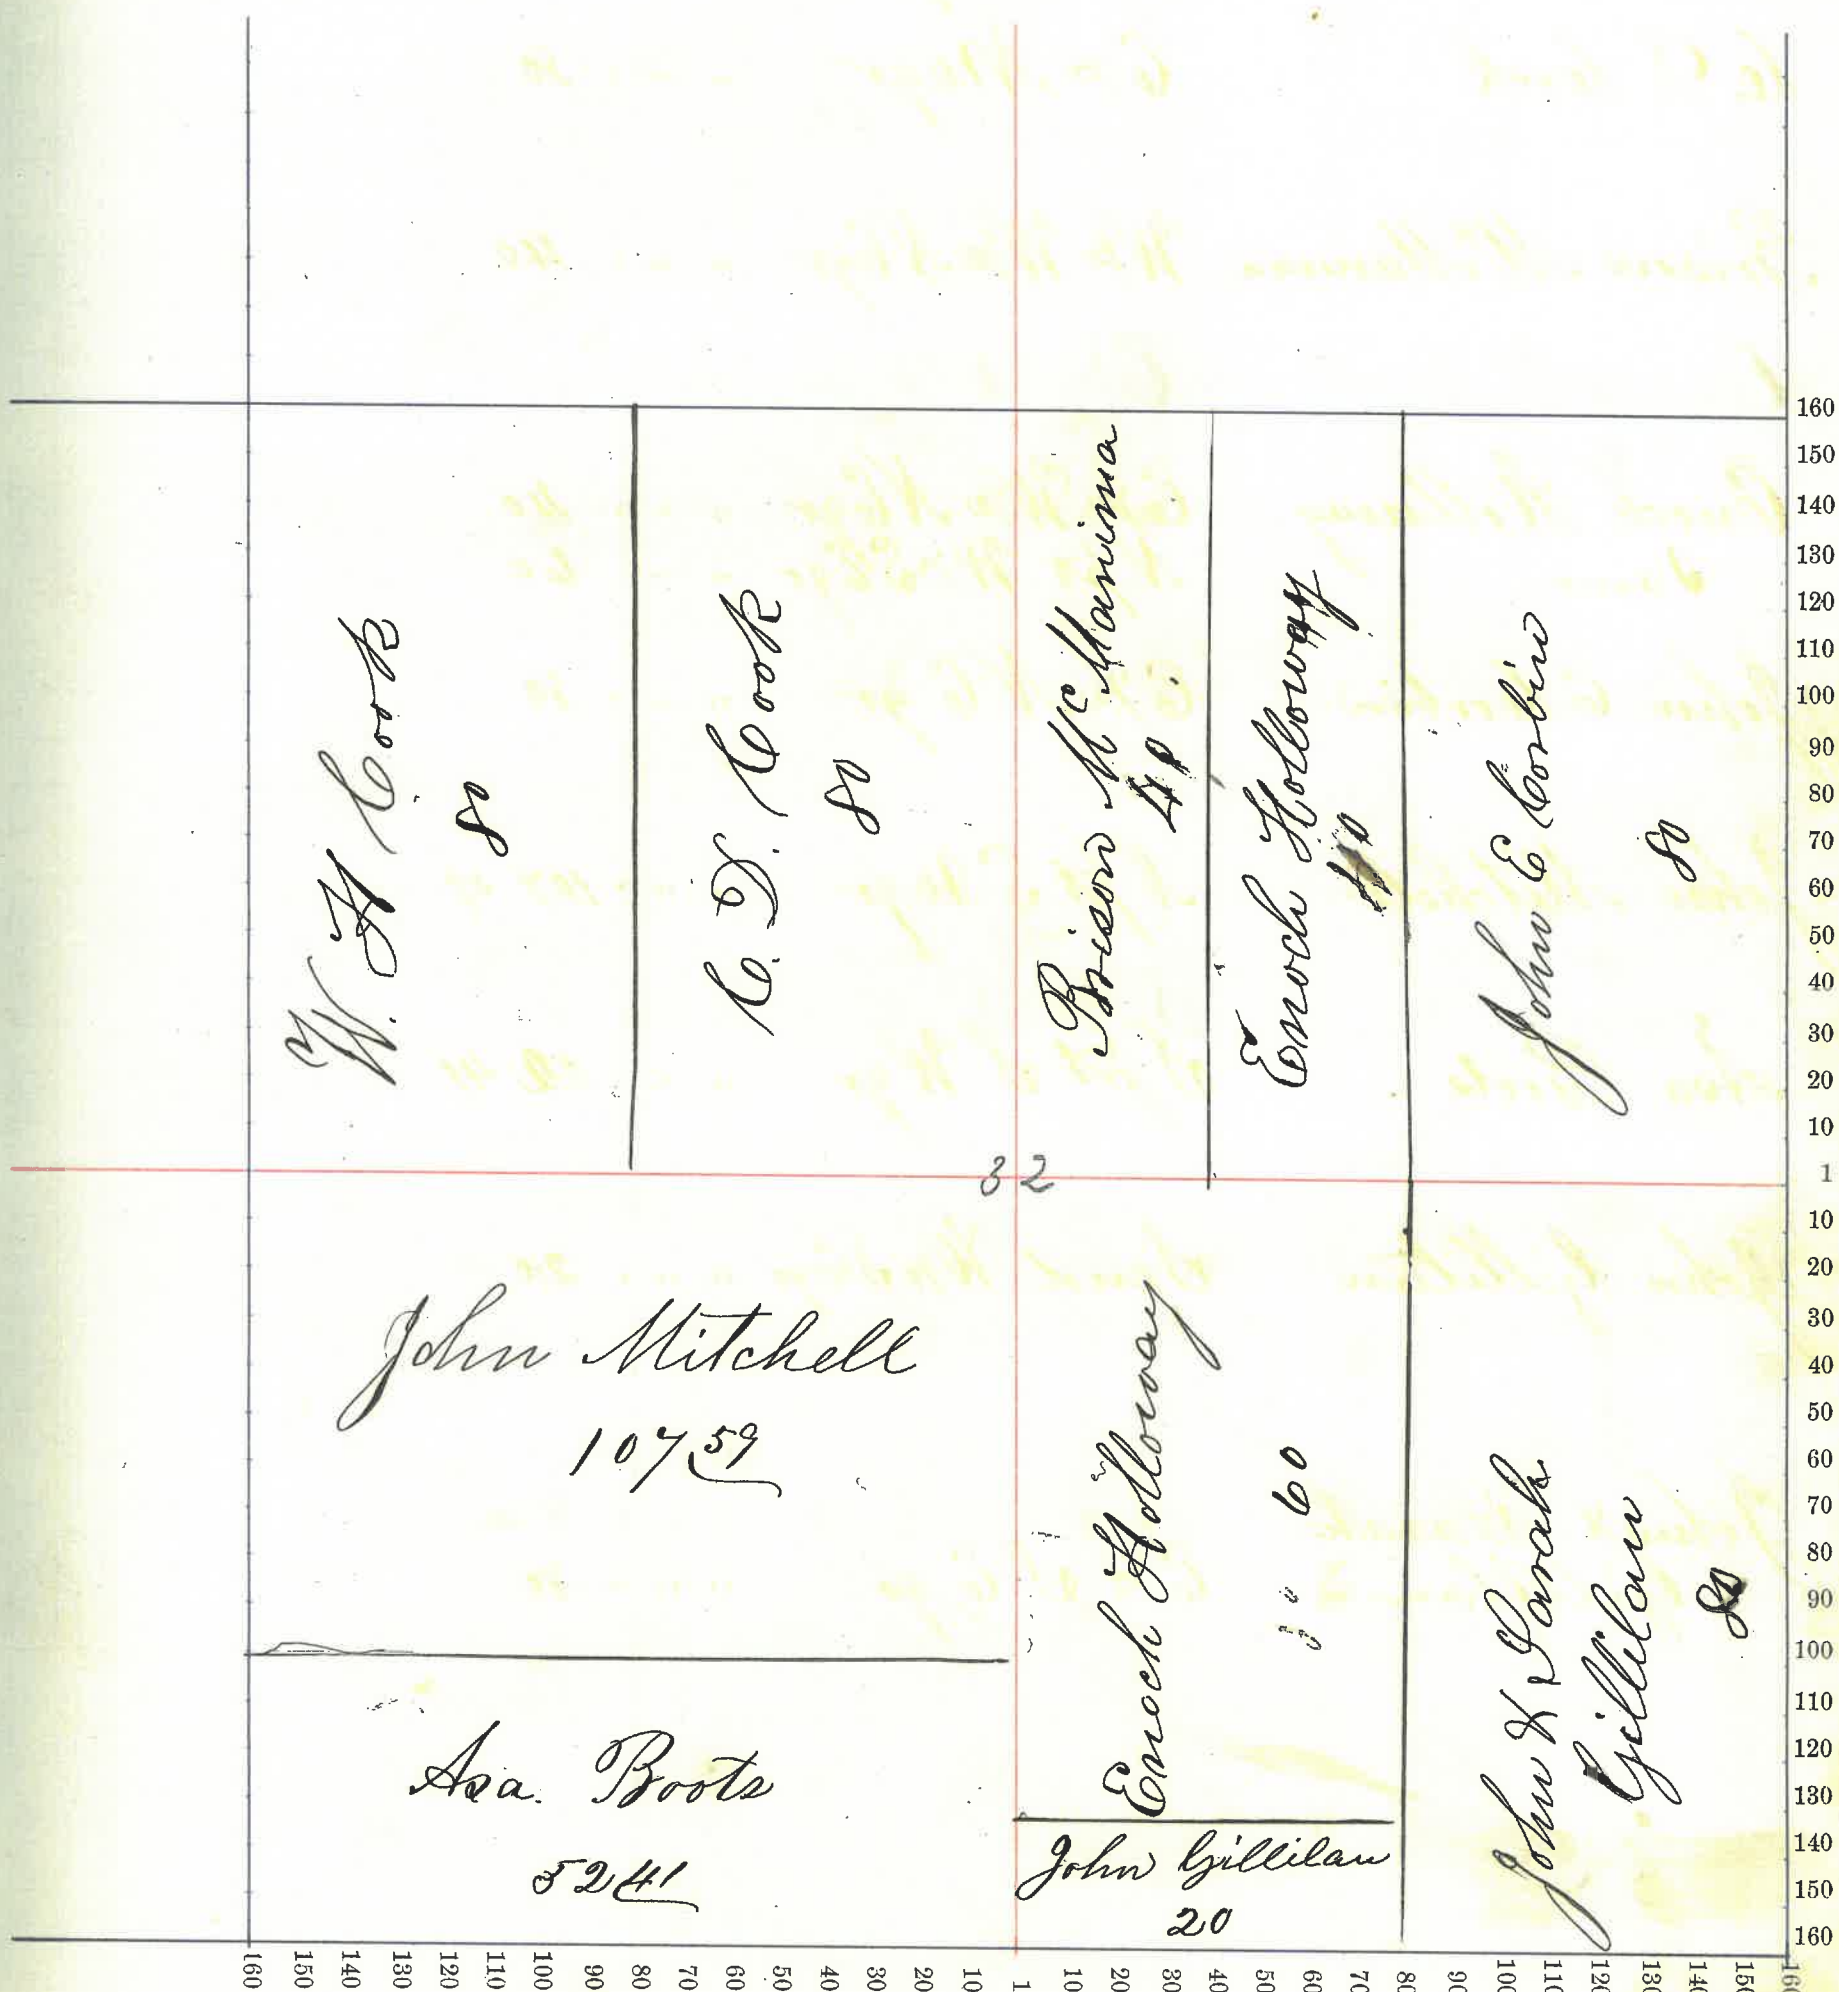 W. H Cook
80
C. D. Cook
80
Brison McManima
40
Enoch Holloway
40
John E Corbin
80
32
John Mitchell
107 59
Asa. Boots
52 41
Enoch Holloway
60
John Gillilan
20
John & Sarah
Gillilan
80
160
150
140
130
120
110
100
90
80
70
60
50
40
30
20
10
1
10
20
30
40
50
60
70
80
90
100
110
120
130
140
150
160
160 150 140 130 120 110 100 90 80 70 60 50 40 30 20 10 1 10 20 30 40 50 60 70 80 90 100 110 120 130 140 150 160